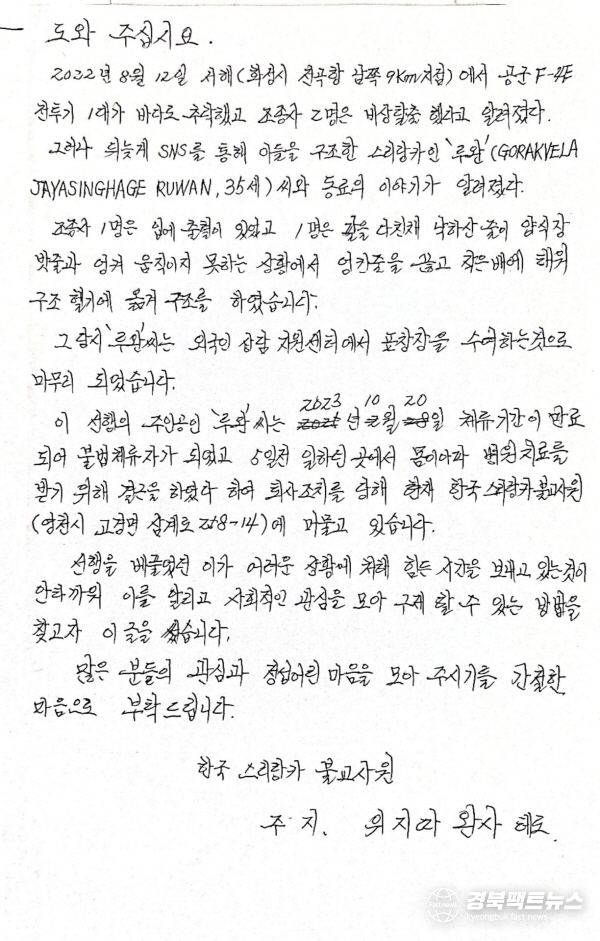 도와 주십시요.
2022년 8월 12일 서해(화성시 전곡항 남쪽 9Km지점)에서 공군 F-4E
전투기 1대가 바다로 추락했고 조종사 2명은 비상탈출 했다고 알려졌다.
그러나 뒤늦게 SNS를 통해 이들을 구조한 스리랑카인 '루완'(GORAKVELA
JAYASINGHAGE RUWAN, 35세)씨와 동료의 이야기가 알려졌다.
조종사 1명은 입에 출혈이 있었고 1명은 팔을 다친채 낙하산 줄이 양식장
밧줄과 엉켜 움직이지 못하는 상황에서 엉킨줄을 끊고 작은배에 태워
구조 헬기에 옮겨 구조를 하였습니다.
그 당시 '루완'씨는 외국인 상담 지원센터에서 표창장을 수여하는것으로
마무리 되었습니다.
이 선행의 주인공인 '루완'씨는 2023년 10월 20일 체류기간이 만료
되어 불법체류자가 되었고 5일전 일하던 곳에서 몸이아파 병원치료를
받기 위해 결근을 하였다 하여 퇴사조치를 당해 현재 한국스리랑카불교사원
(영천시 고경면 삼계로 258-14)에 머물고 있습니다.
선행을 베풀었던 이가 어려운 상황에 처해 힘든 시간을 보내고 있는것이
안타까워 이를 알리고 사회적인 관심을 모아 구제 할 수 있는 방법을
찾고자 이 글을 씁니다.
많은 분들의 관심과 정성어린 마음을 모아 주시기를 간절한
마음으로 부탁드립니다.
한국 스리랑카 불교사원
주지. 위지따 왕사 테로
경북팩트뉴스
kyeongbuk fact news